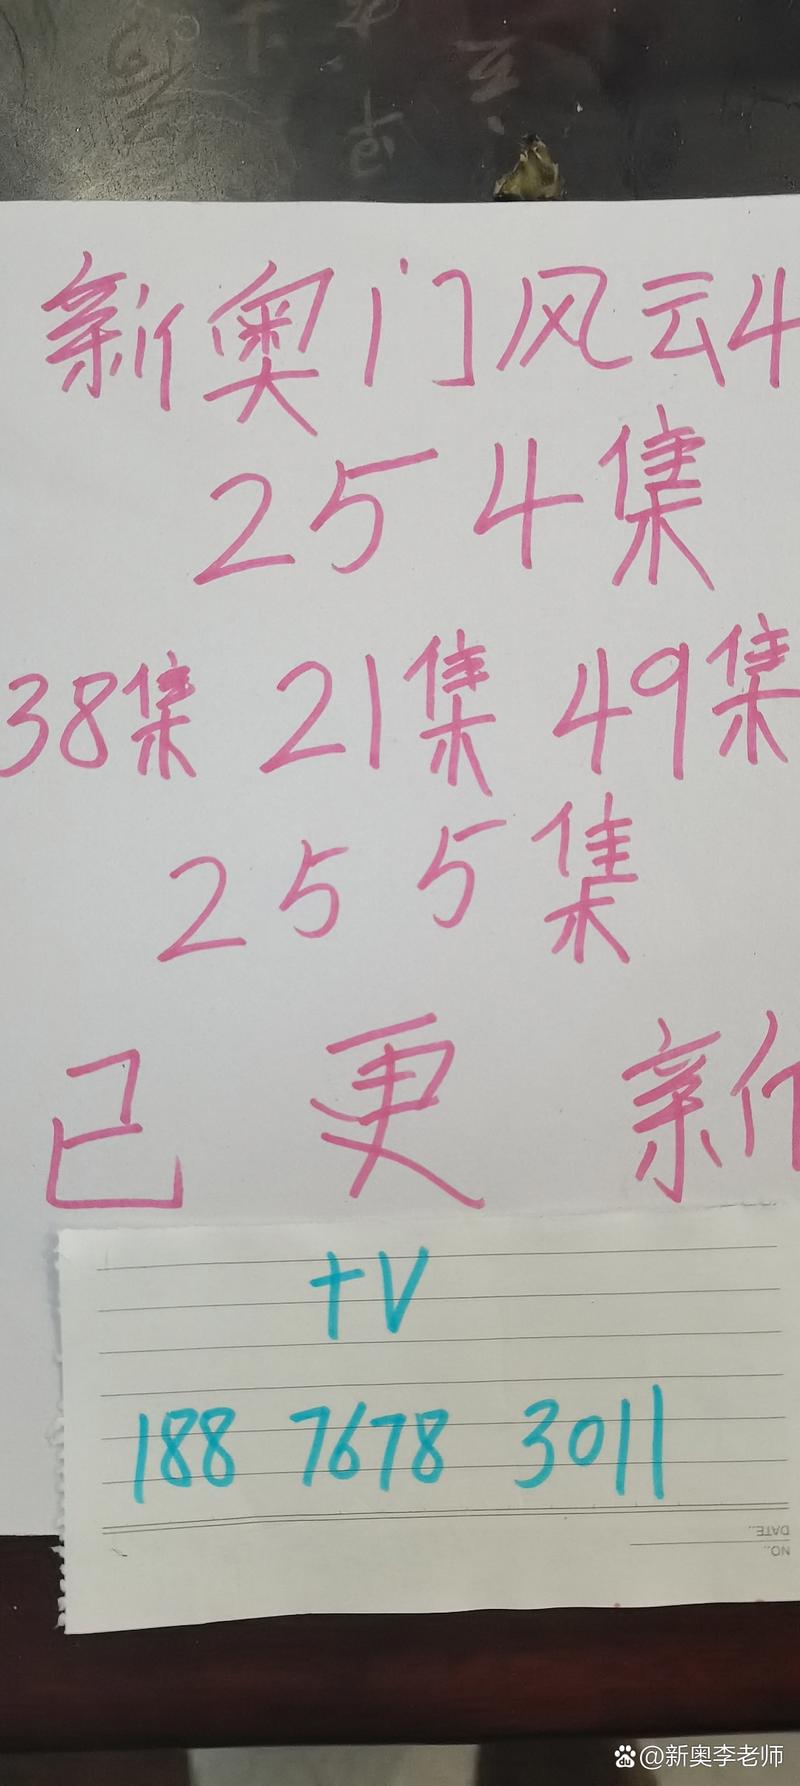 新奥门风云4
254集
38集 21集 49集
255集
已更新
+V
188 7678 3011
DATE..
NO..
@新奥李老师